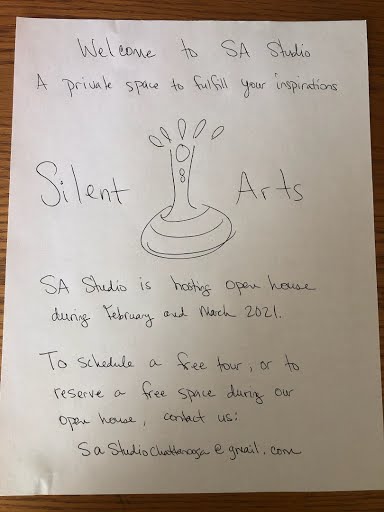 Welcome to SA Studio
A private space to fulfill your inspirations
Silent Arts
SA Studio is hosting open house
during February and March 2021.
To schedule a free tour, or to
reserve a free space during our
open house, contact us:
SaStudioChattanooga@gmail.com